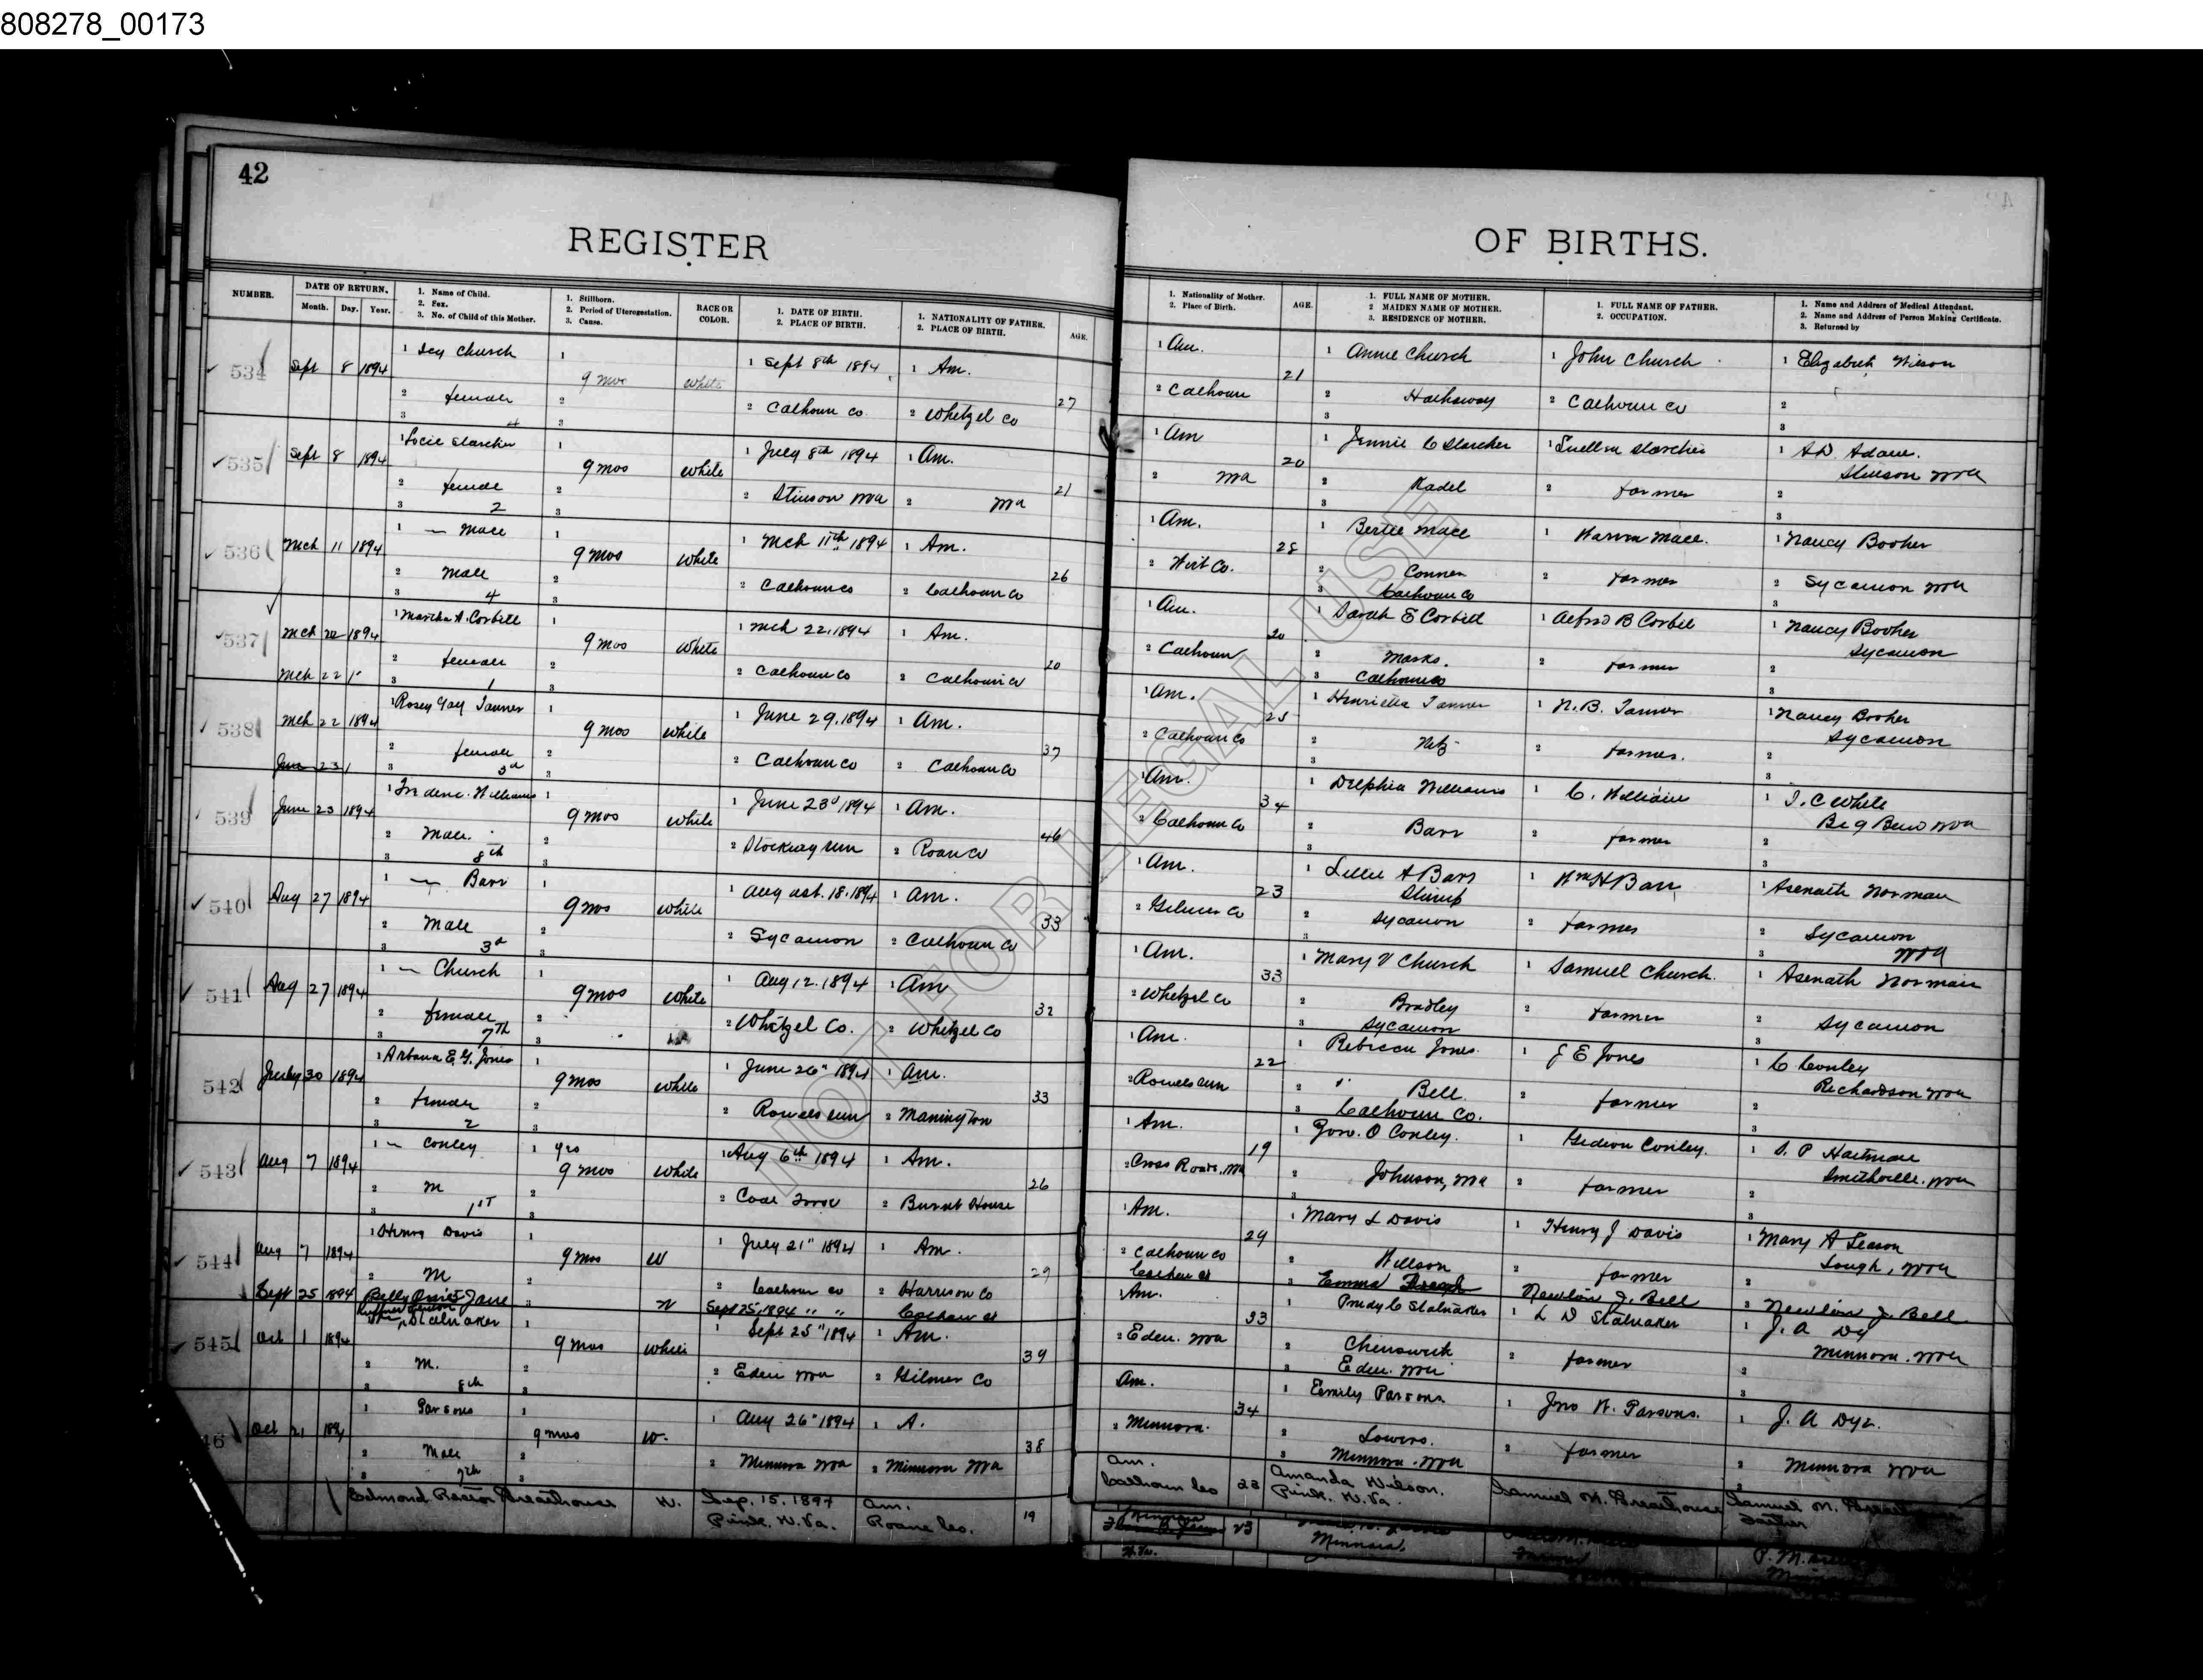 808278_00173
42
REGISTER
OF BIRTHS.
NUMBER.
DATE OF RETURN.
Month. Day. Year.
1. Name of Child.
2. Sex.
3. No. of Child of this Mother.
1. Stillborn.
2. Period of Uterogestation.
3. Cause.
RACE OR
COLOR.
1. DATE OF BIRTH.
2. PLACE OF BIRTH.
1. NATIONALITY OF FATHER.
2. PLACE OF BIRTH.
AGE.
1. Nationality of Mother.
2. Place of Birth.
AGE.
1. FULL NAME OF MOTHER.
2 MAIDEN NAME OF MOTHER.
3. RESIDENCE OF MOTHER.
1. FULL NAME OF FATHER.
2. OCCUPATION.
1. Name and Address of Medical Attendant.
2. Name and Address of Person Making Certificate.
3. Returned by
534 Sept 8 1894 1 Church 1 9 mos White 1 Sept 8th 1894 1 Am. 27 1 Am. 21 1 Annie Church 1 John Church 1 Elizabeth
2 female 2 2 Calhoun Co 2 Whetzel Co 2 Calhoun 2 Hathaway 2 Calhoun Co 2
3 4 3 3 3
535 Sept 8 1894 1 Starcher 1 9 mos White 1 July 8th 1894 1 Am. 21 1 Am 20 1 Jennie C Starcher 1 Starcher 1 Adams.
Stinson WVa
2 female 2 2 Stinson WVa 2 WVa 2 WVa 2 Nadel 2 farmer 2
3 2 3 3 3
536 Mch 11 1894 1 — Mace 1 9 mos White 1 Mch 11th 1894 1 Am. 26 1 Am. 28 1 Bertie Mace 1 Mace. 1 Nancy Booher
2 Male 2 2 Calhoun Co 2 Calhoun Co 2 Wirt Co. 2 Conner 2 farmer 2 Sycamon WVa
3 4 3 3 Calhoun Co 3
537 Mch 22 1894 1 Martha A. Corbitt 1 9 mos White 1 Mch 22. 1894 1 Am. 20 1 Am. 20 1 Sarah E Corbitt 1 Alfred B Corbit 1 Nancy Booher
Sycamon
Mch 22 2 female 2 2 Calhoun Co 2 Calhoun Co 2 Calhoun 2 Marks. 2 farmer 2
3 1 3 3 Calhoun Co 3
538 Mch 22 1894 1 Rosey Gay Tanner 1 9 mos White 1 June 29, 1894 1 Am. 37 1 Am. 1 Henrietta Tanner 1 N. B. Tanner 1 Nancy Booher
Sycamon
June 23 2 female 2 2 Calhoun Co 2 Calhoun Co 2 Calhoun Co 2 2 farmer. 2
3 3d 3 3 3
539 June 23 1894 1 Williams 1 9 mos White 1 June 23d 1894 1 Am. 46 1 Am. 34 1 Delphia Williams 1 C. 1 White
Big Bend WVa
2 Male. 2 2 run 2 Roan Co 2 Calhoun Co 2 Barr 2 farmer 2
3 8th 3 3 3
540 Aug 27 1894 1 — Barr 1 9 mos White 1 18. 1894 1 Am. 33 1 Am. 23 1 Lillie A Barr 1 Wm H Barr 1 Asenath Norman
Stump
2 Male 2 2 Sycamon 2 Calhoun Co 2 Gilmer Co 2 Sycamon 2 farmer 2 Sycamon
3 3d 3 3 3 WVa
541 Aug 27 1894 1 — Church 1 9 mos White 1 Aug 12. 1894 1 Am 32 1 Am. 33 1 Mary V Church 1 Samuel Church. 1 Asenath Norman
2 female 2 2 Whetzel Co. 2 Whetzel Co 2 Whetzel Co 2 Bradley 2 farmer 2 Sycamon
3 7TH 3 3 Sycamon 3
542 July 30 1894 1 Arbana E. G. Jones 1 9 mos White 1 June 26" 1894 1 Am. 33 1 Am. 22 1 Rebecca Jones. 1 J E Jones 1 C Conley
Richardson WVa
2 female 2 2 Rowels run 2 Manington 2 Rowels run 2 Bell 2 farmer 2
3 2 3 3 Calhoun Co. 3
543 Aug 7 1894 1 — Conley 1 yes 9 mos White 1 Aug 6th 1894 1 Am. 26 1 Am. 19 1 O Conley. 1 Gideon Conley. 1 S. P Hartman
Smithville. WVa
2 M 2 2 2 Burnt House 2 Cross Roads. WVa 2 Johnson, WVa 2 farmer 2
3 1ST 3 3 3
544 Aug 7 1894 1 Henry Davis 1 9 mos W 1 July 21" 1894 1 Am. 29 1 Am. 29 1 Mary L Davis 1 Henry J Davis 1 Mary A Season
WVa
2 M 2 2 Calhoun Co 2 Harrison Co 2 Calhoun Co 2 Willson 2 farmer 2
Sept 25 1894 Jane W Sept 25, 1894 " " 3 Emma Newlon J. Bell 3 Newlon J. Bell
545 Oct 1 1894 Stalnaker 1 9 mos White 1 Sept 25" 1894 1 Am. 39 Am. 33 1 C Stalnaker 1 L D Stalnaker 1 J. A Dy
Minnora. WVa
2 M. 2 2 Eden WVa 2 Gilmer Co 2 Eden. WVa 2 Chenoweth 2 farmer 2
3 8th 3 3 Eden. WVa 3
46 Oct 21 1894 1 Parsons 1 9 mos W. 1 Aug 26" 1894 1 A. 38 Am. 34 1 Emily Parsons. 1 Jno W. Parsons. 1 J. A Dye.
2 Male 2 2 Minnora WVa 2 Minnora WVa 2 Minnora. 2 Lowers. 2 farmer 2 Minnora WVa
3 7th 3 3 Minnora. WVa
Edmond Greathouse W. Sep. 15. 1897 Am. 19 Am. 23 Amanda Wilson. Samuel W. Greathouse Samuel W.
Pink. W. Va. Roane Co. Calhoun Co Pink. W. Va. Father
Minnora 23
W. Va. Minnora.
NOT FOR LEGAL USE